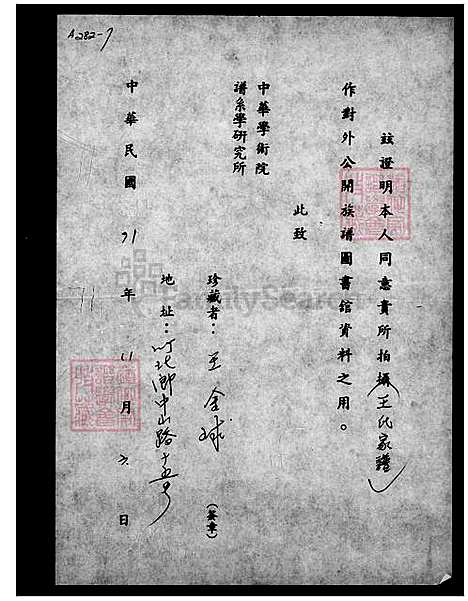 A282-7
玆證明本人同意貴所拍攝(王氏家譜)
作對外公開族譜圖書館資料之用。
此致
中華學術院
譜系學研究所
珍藏者:王金球(簽章)
地址:竹北鄉中山路十五号
中華民國71年11月 日
FamilySearch